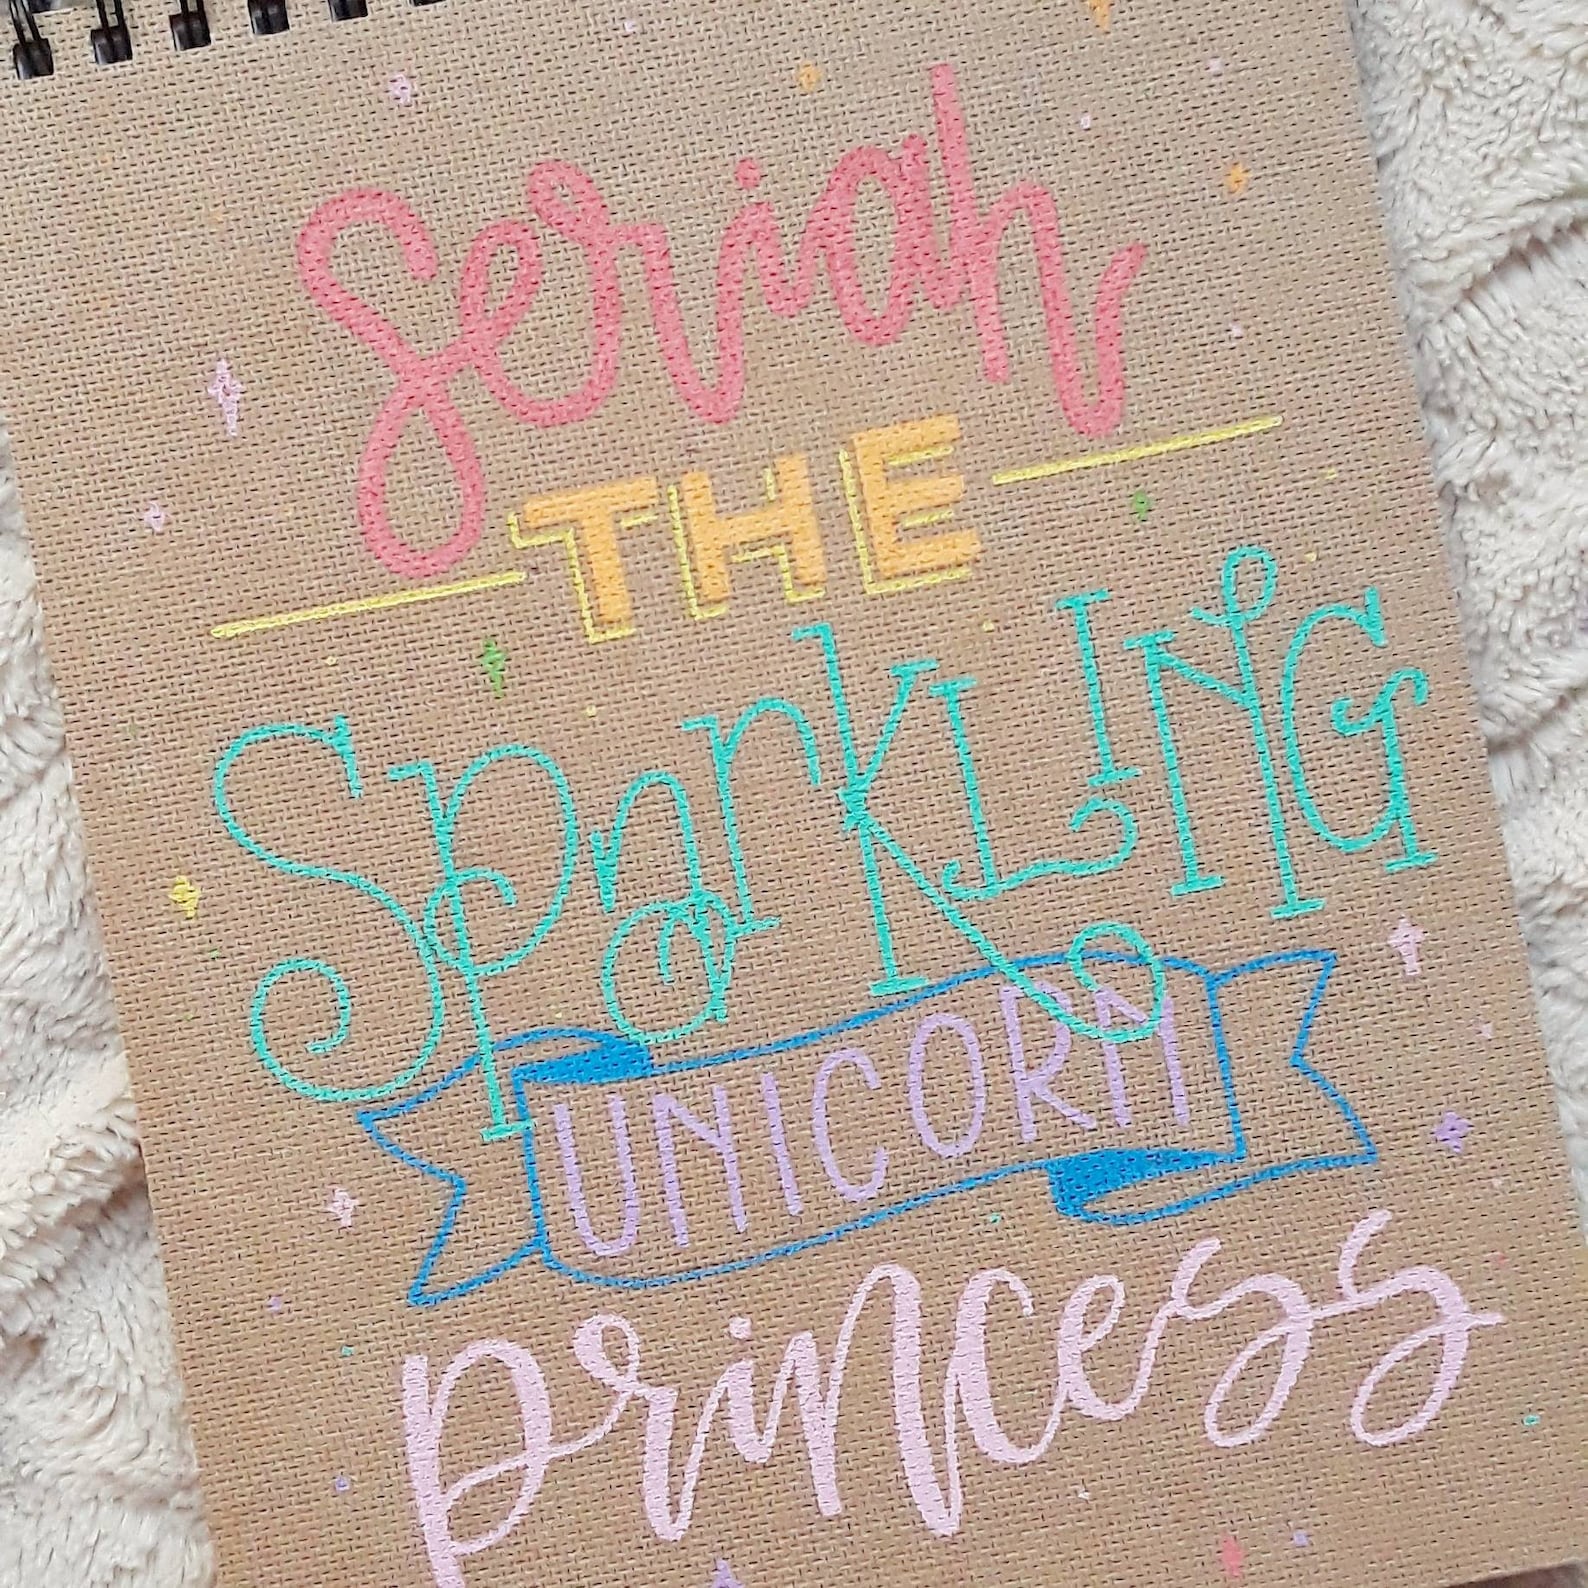 Seriah
THE
SparkLING
UNICORN
princess